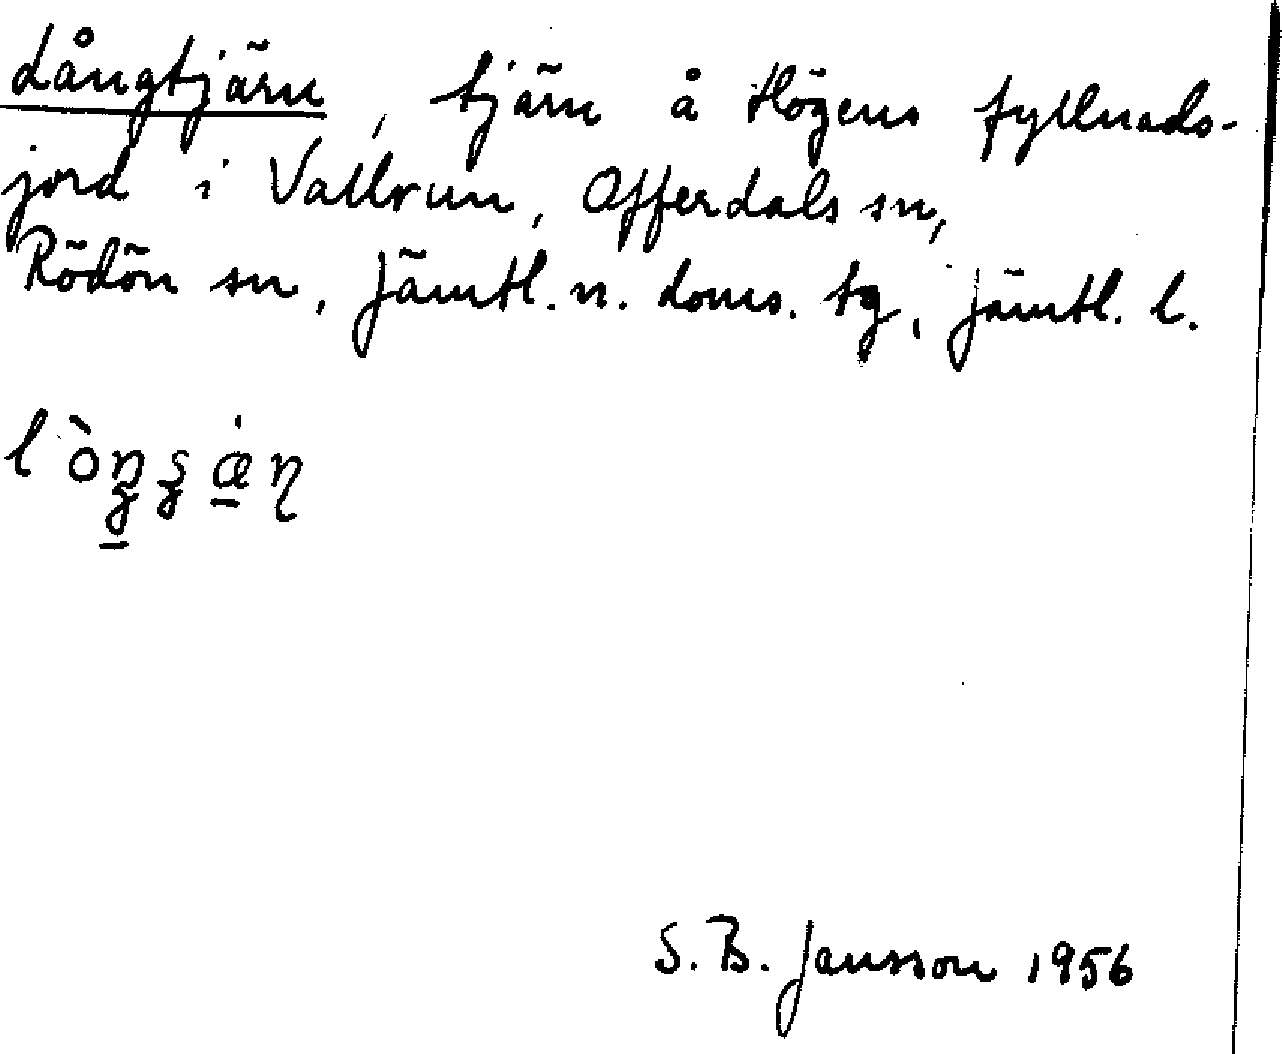 Långtjärn, tjärn å Högens fyllnads-
jord i Vallrun, Offerdals sn,
Rödön sn, Jämtl. n. doms. tg, Jämtl. l.
S. B. Jansson 1956